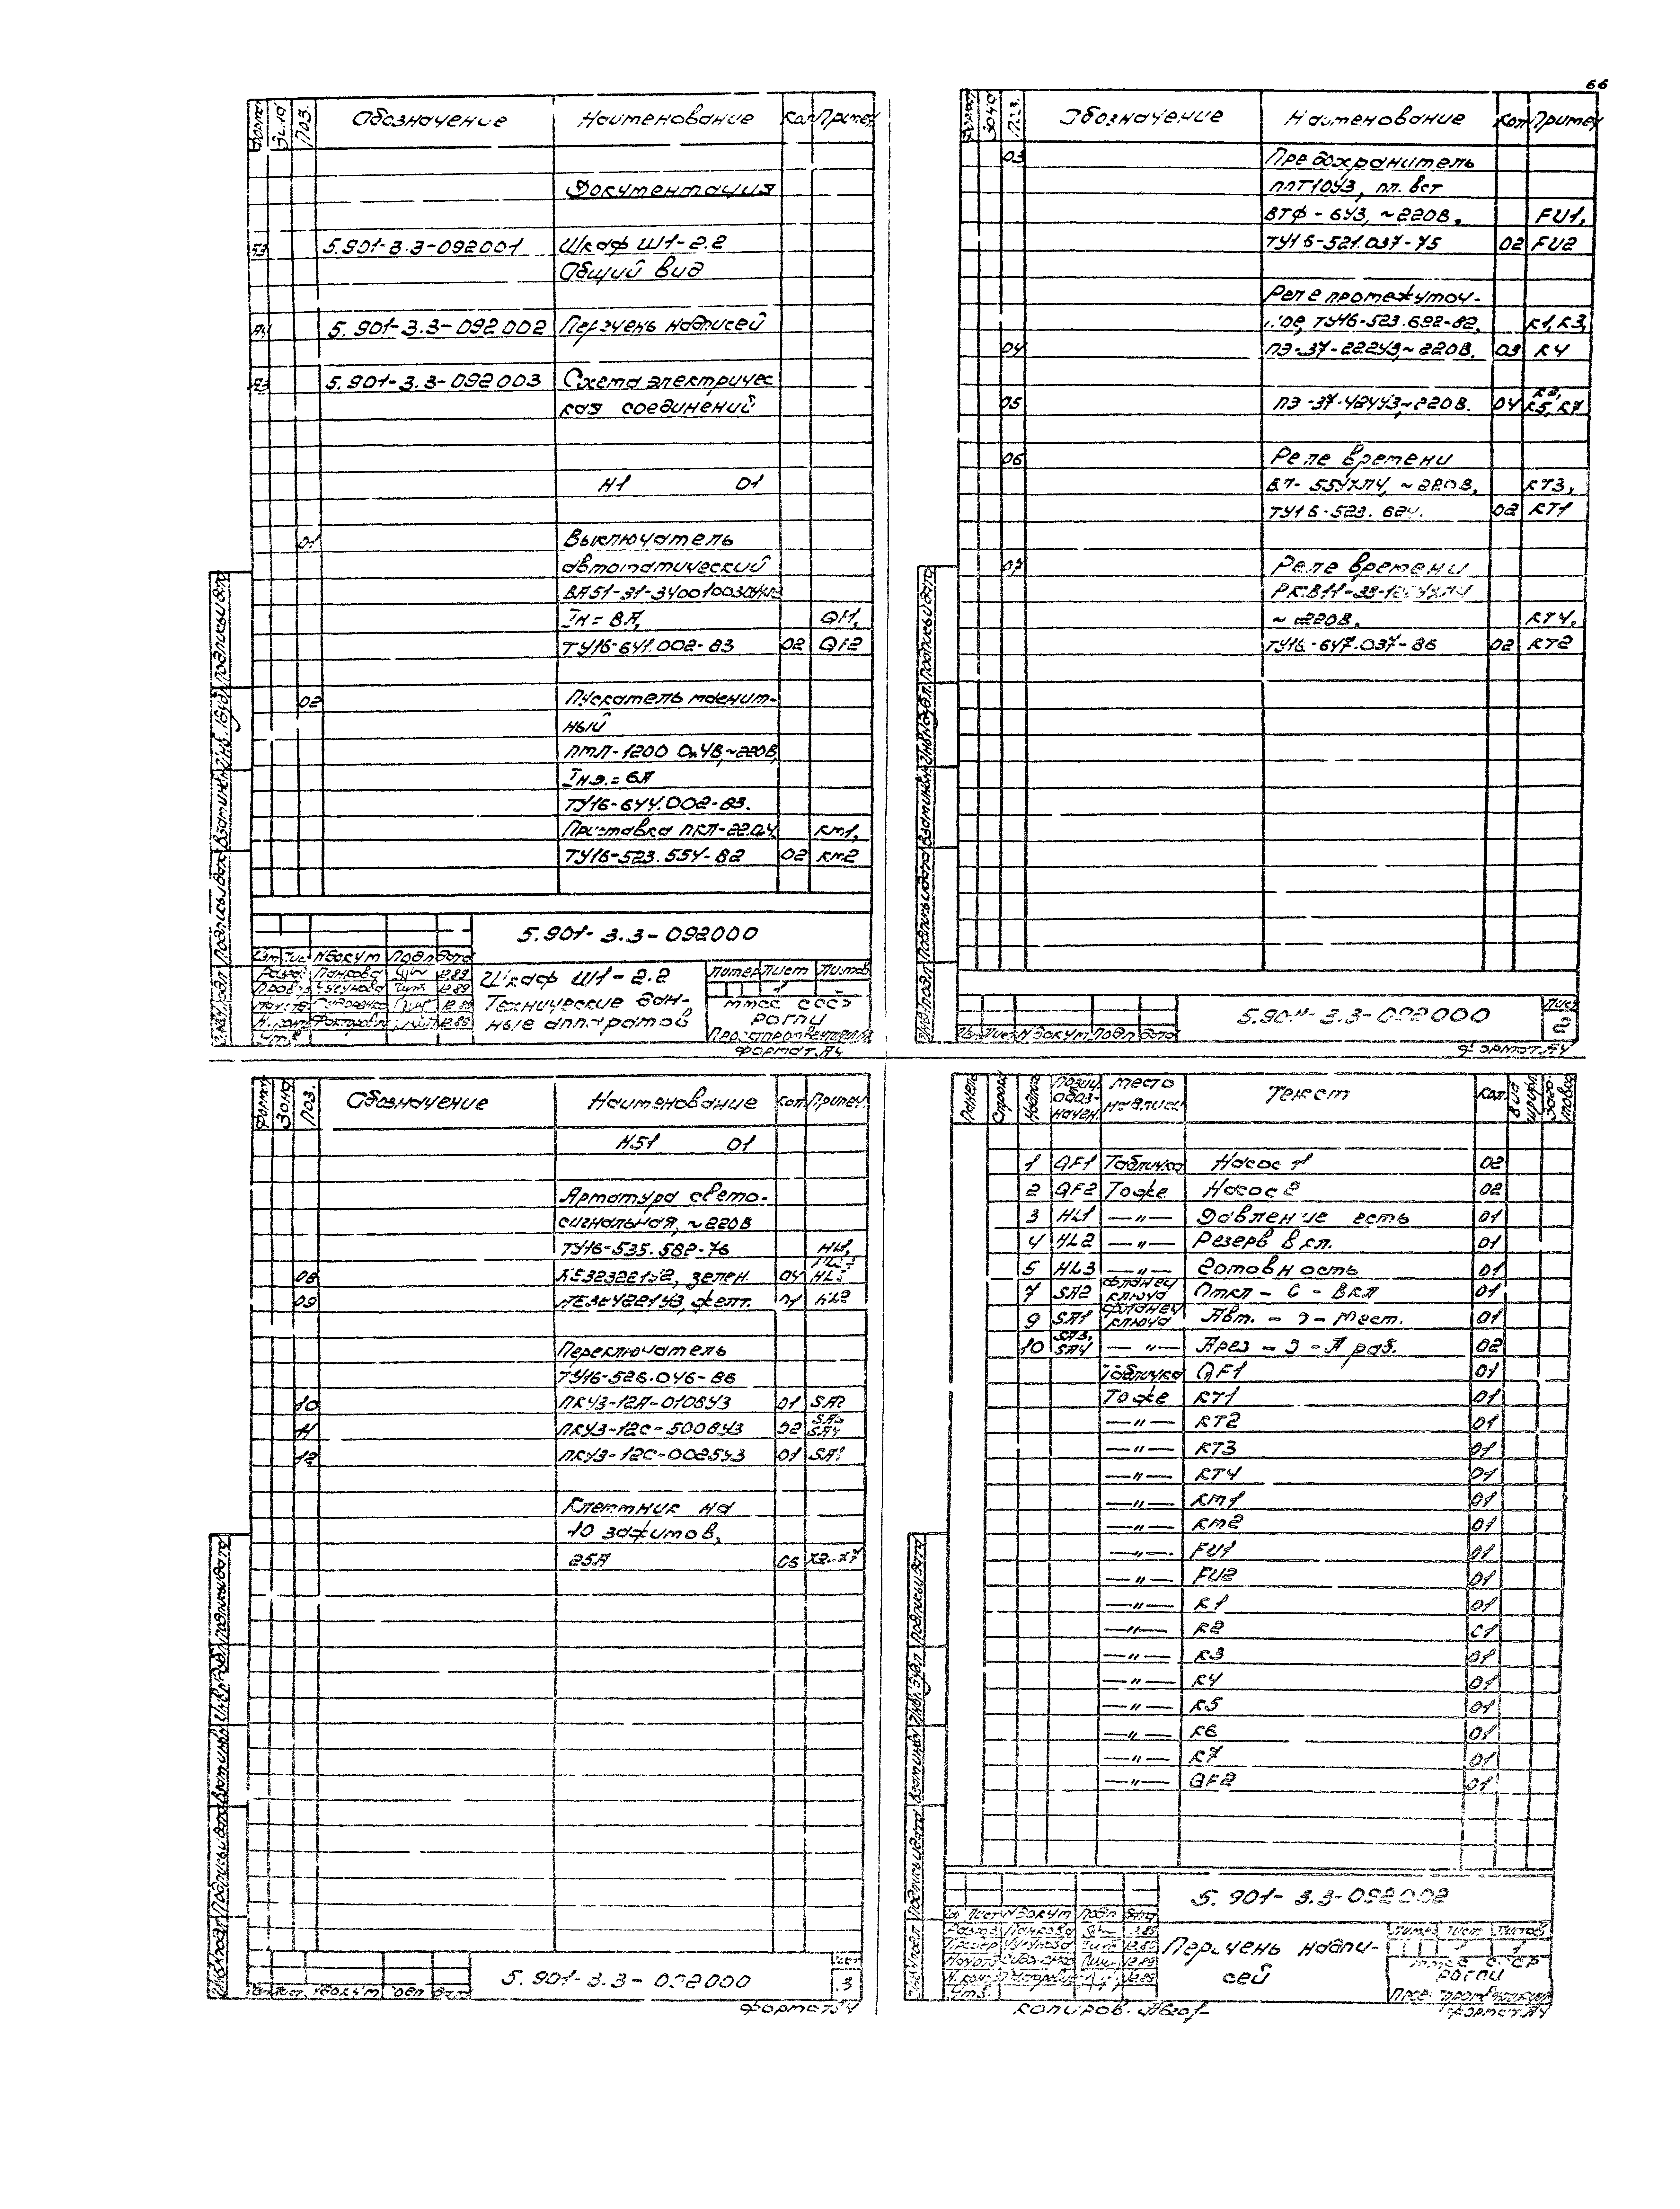 66
Зона Поз. Обозначение Наименование Кол Примеч
Документация
А3 5.901-3.3-092001 Шкаф Ш1-2.2
Общий вид
А4 5.901-3.3-092002 Перечень надписей
А3 5.901-3.3-092003 Схема электричес
кая соединений
Н1 01
01 Выключатель
автоматический
Iн = 8А, QF1,
ТУ16-641.002-83 02 QF2
02 Пускатель магнит-
ный
ПМЛ-1200 ~220В,
Iн.э.= 6А
ТУ16-644.002-83.
Приставка ПКЛ-22.04, КМ1,
ТУ16-523.554-82 02 КМ2
5.901-3.3-092000
Изм Лист №докум Подп Дата
Панкова 12.89
Чусунова 12.89
12.89
12.89
Утв
Шкаф Ш1-2.2
Технические дан-
ные аппаратов
Литер Лист Листов
1
ММСС СССР
РОГПИ
Проектпромвентиляция
Формат А4
Формат Зона Поз. Обозначение Наименование Кол Примеч
03 Предохранитель
ППТ10У3, пл. вст
ВТФ-6У3, ~220В, FU1,
ТУ16-521.037-75 02 FU2
Реле промежуточ-
ное, ТУ16-523.622-82, К1, К3,
04 ПЭ-37-22У3, ~220В. 03 К4
05 ПЭ-37-42У3, ~220В. 04 К5, К7
06 Реле времени
~220В, КТ3,
ТУ16-523.624. 02 КТ1
07 Реле времени
~220В, КТ4,
ТУ16-647.037-86 02 КТ2
5.901-3.3-092000
Лист
2
Изм Лист №докум Подп Дата
Формат А4
Формат Зона Поз. Обозначение Наименование Кол Примеч.
Н51 01
Арматура свето-
сигнальная, ~220В
ТУ16-535.582-76 HL1,
08 зелен. 04 HL3
09 желт. 01 HL2
Переключатель
ТУ16-526.046-86
10 ПКУ3-12А-0108У3 01 SA2
11 ПКУ3-12С-5008У3 02 SA3 SA4
12 ПКУ3-12С-0025У3 01 SA1
Клеммник на
10 зажимов,
25А 06 Х2..Х7
5.901-3.3-092000
Лист
3
Формат А4
Панель Строка Надпись Позиц. обоз- начен. Место надписи Текст Кол. Вид шрифт. Заго- товка
1 QF1 Табличка Насос 1
02
2 QF2 То же Насос 2 02
3 HL1 —"— Давление есть 01
4 HL2 —"— Резерв вкл. 01
5 HL3 —"— Готовность 01
7 SA2 Фланец ключа Откл - О - Вкл 01
9 SA1 Фланец ключа Авт. - О - Мест. 01
10 SA3, SA4 —"— А рез - О - А раб. 02
Табличка QF1 01
То же КТ1 01
—"— КТ2 01
—"— КТ3 01
—"— КТ4 01
—"— КМ1 01
—"— КМ2 01
—"— FU1 01
—"— FU2 01
—"— К1 01
—"— К2 01
—"— К3 01
—"— К4 01
—"— К5 01
—"— К6 01
—"— К7 01
—"— QF2 01
5.901-3.3-092002
Перечень надпи-
сей
Литер Лист Листов
1 1
ММСС СССР
РОГПИ
Формат А4
Копиров.